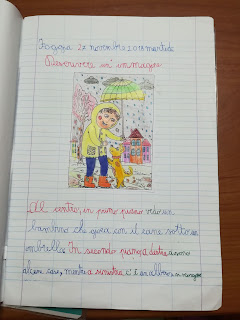 Foggia 27 novembre 2018 martedì
Descrivere un'immagine
Al centro, in primo piano vedo un
bambino che gioca con il cane sotto un
ombrello. In secondo piano, a destra ci sono
alcune case, mentre a sinistra c'è un albero